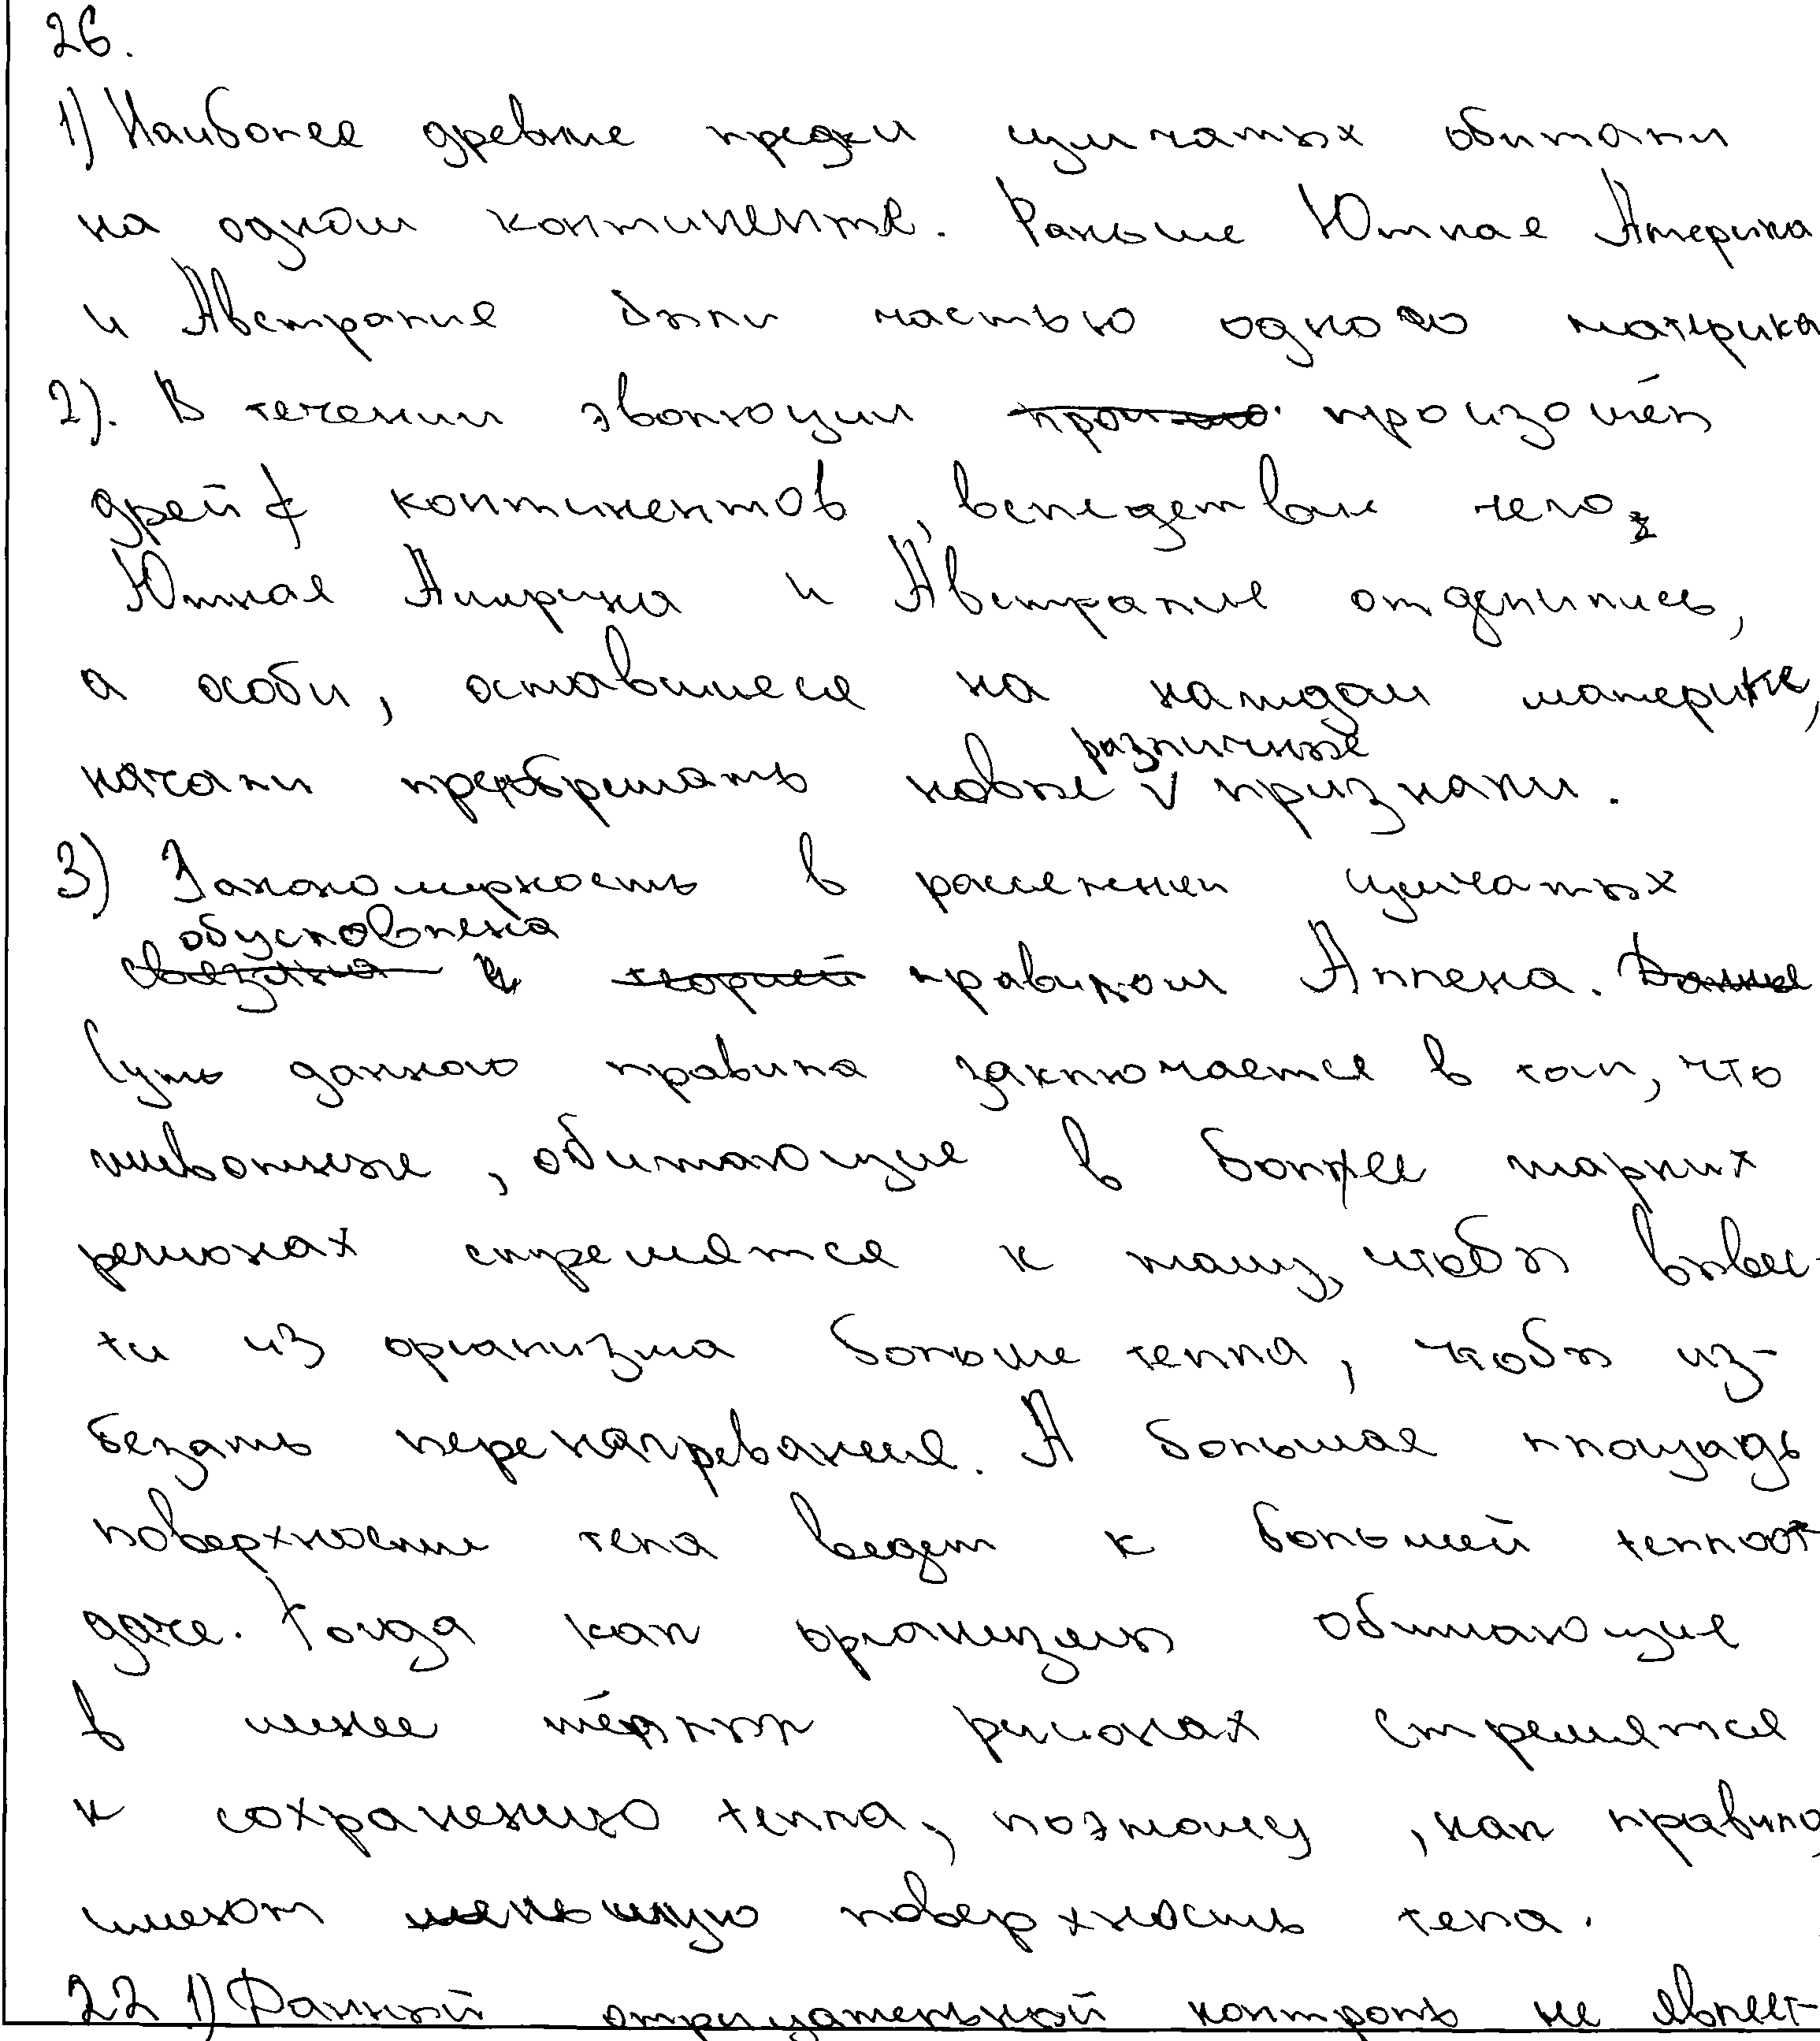 26.
1) Наиболее древние предки цингатых обитали
на одном континенте. Раньше Южная Америка
и Австралия были частью одного материка
2). В течении эволюции произошёл
дрейф континентов, вследствие чего
Южная Америка и Австралия отделились,
а особи, оставшиеся на каждом материке,
начали преобретать новые различные признаки.
3) Закономерность в расселении
обусловлена правилом Аллена.
Суть данного правила заключается в том, что
животные, обитающие в более жарких
регионах стремятся к тому, чтобы вывес-
ти из организма больше тепла, чтобы из-
бежать перенагревания. А большая площадь
поверхности тела ведет к большей теплоот
даче. Тогда как организмы обитающие
в менее тёплых регионах стремятся
к сохранению тепла, поэтому, как правило,
имеют меньшую поверхность тела.
22 1) Данный отрицательный контроль не являет-